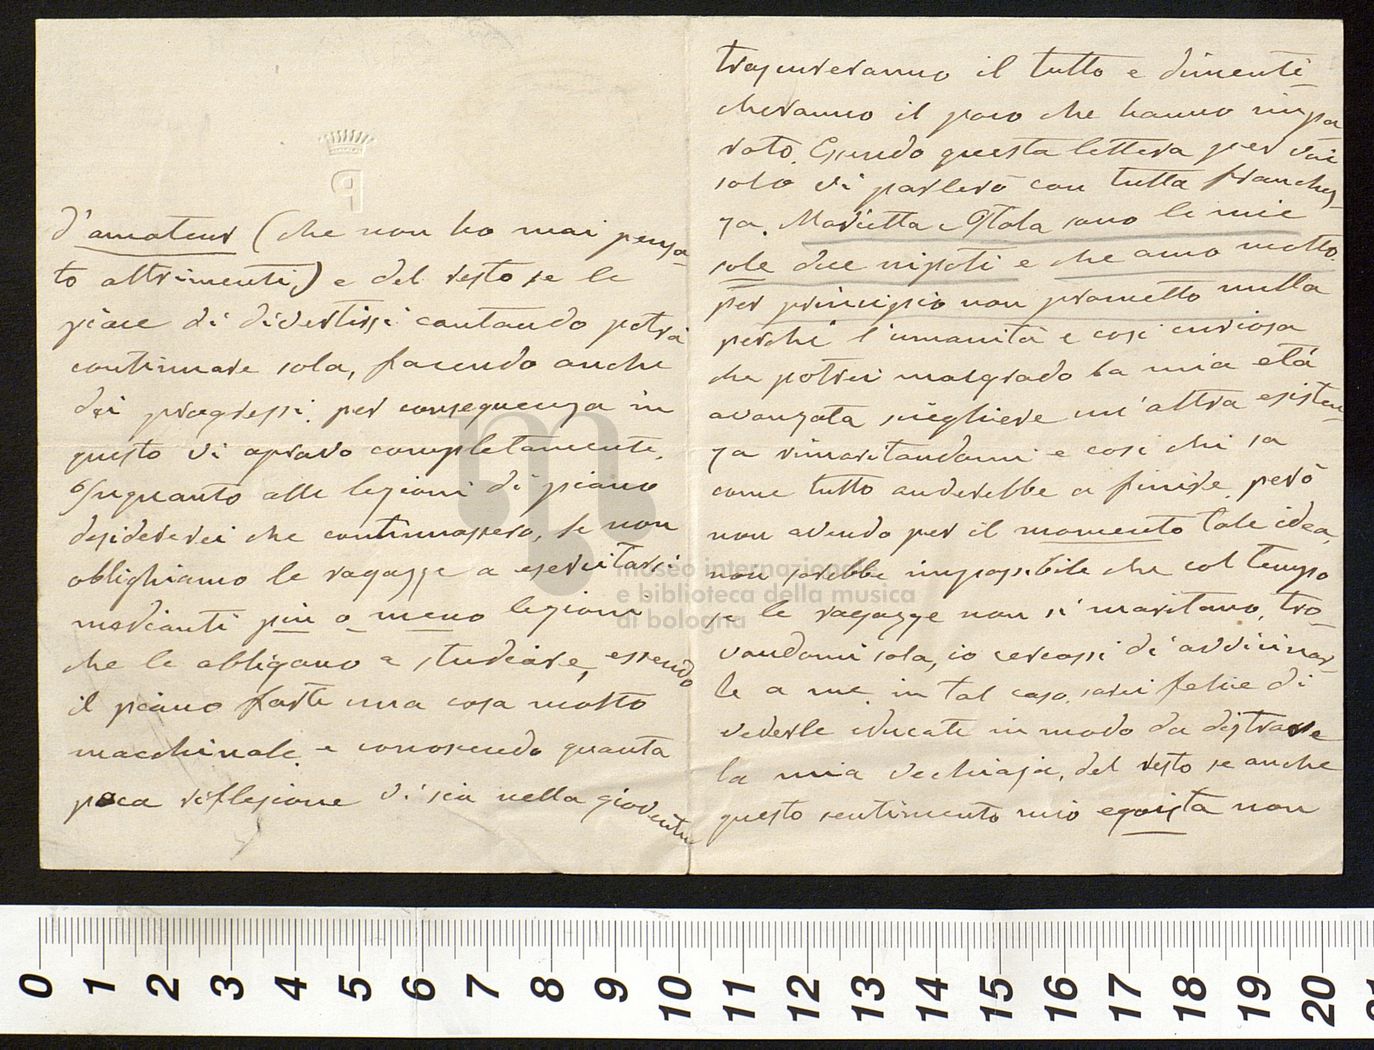 d'amateur (che non ho mai pensa-
to altrimenti,) e del resto se le
piace di divertissi cantando potrà
continuare sola, facendo anche
dei progressi. per conseguenza in
questo vi apravo completamente.
Inquanto alle lezioni di piano
desidererei che continuassero, se non
oblighiamo le ragazze a esercitarsi
medianti più o meno lezioni
che le obligano a studiare, essendo
il piano forte una cosa molto
macchinale. e conoscendo quanta
poca riflessione vi sia nella gioventu
P
trascureranno il tutto e dimenti-
cheranno il poco che hanno impa
rato. Essendo questa lettera per voi
solo vi parlerò con tutta franchez-
za. Marietta e Mala sono le mie
sole due nipoti e che amo molto.
per principio non prometto nulla
perchè l'umanità e cosi curiosa
che potrei malgrado la mia età
avanzata scegliere un'altra esisten-
za rimaritandomi e cosi chi sa
come tutto anderebbe a finire. però
non avendo per il momento tale idea,
non sarebbe impossibile che col tempo
se le ragazze non si maritano, tro-
vandomi sola, io cercassi di avvicinar-
le a me. in tal caso. sarei felice di
vederle educate in modo da distrarre
la mia vechiaja. del resto se anche
questo sentimento mio egoista non
museo internazionale
e biblioteca della musica
di bologna
0 1 2 3 4 5 6 7 8 9 10 11 12 13 14 15 16 17 18 19 20 21